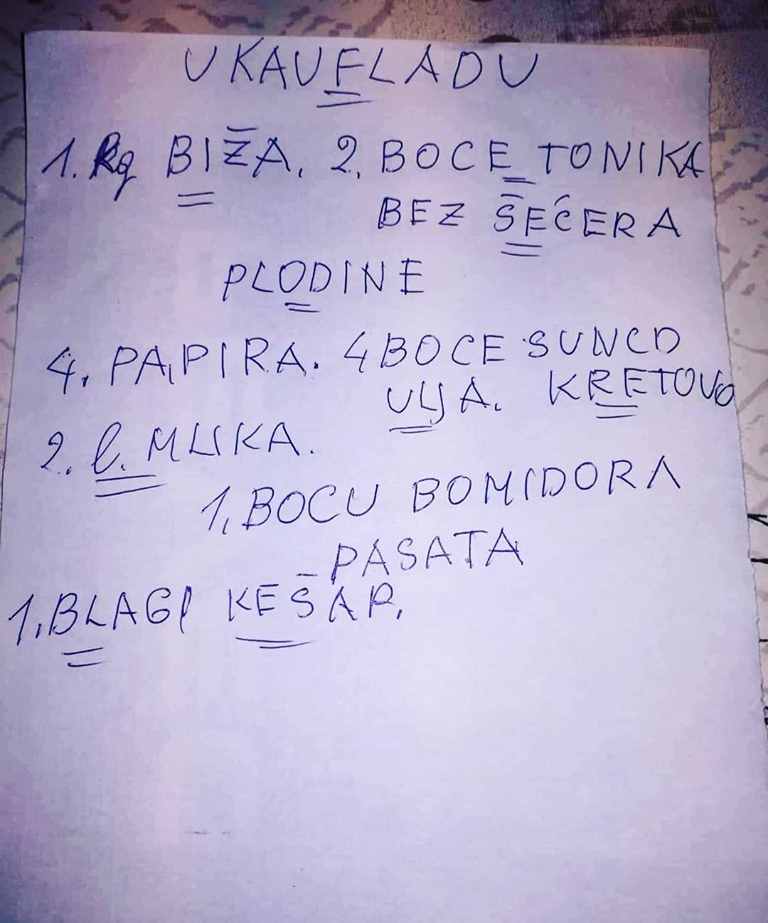 U KAUFLADU
1. kg BIŽA. 2. BOCE TONIKA
BEZ ŠEĆERA
PLODINE
4. PAPIRA. 4 BOCE SUNCO
ULJA. KRETOVO
2. l. MLIKA.
1, BOCU BOMIDORA
- PASATA
1, BLAGI KEŠAR,